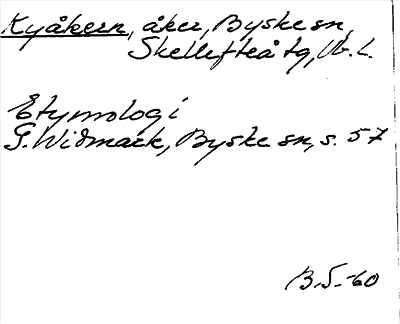 Kyåkern, åker, Byske sn,
Skellefteå tg, Vb. l.
Etymologi
G. Widmark, Byske sn, s. 57
B.S.-60